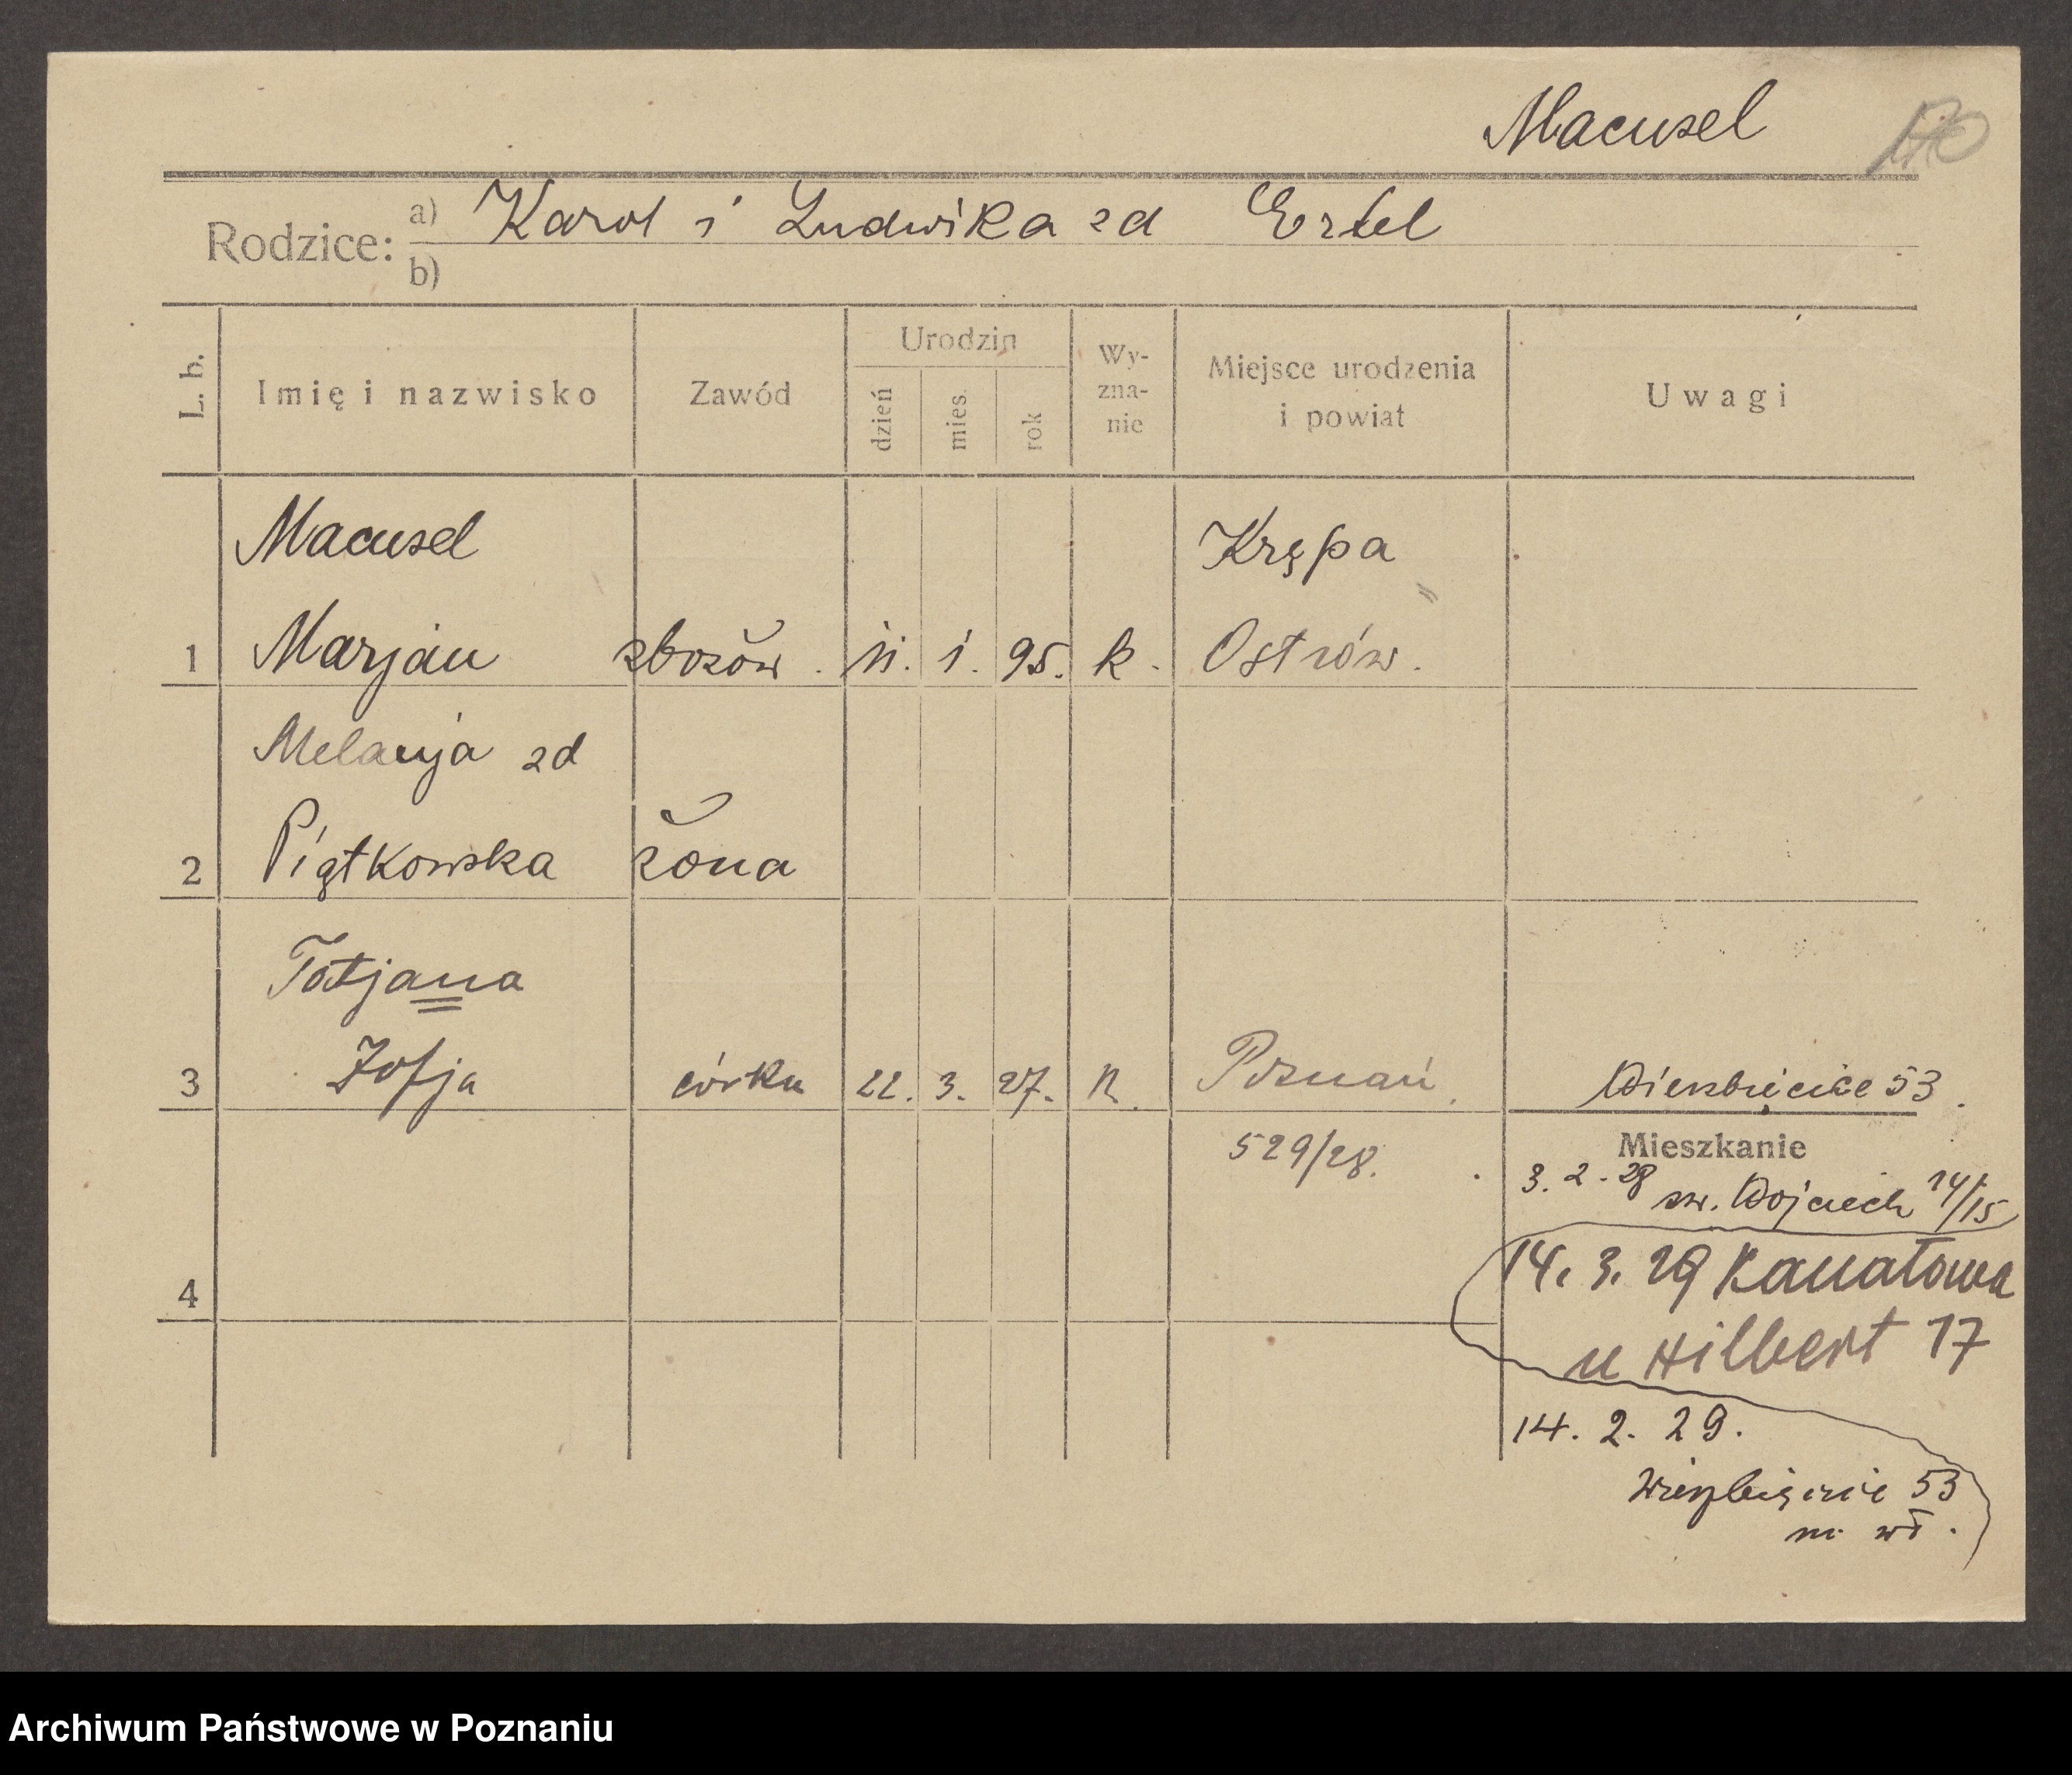 Macusel
Rodzice: a) Karol i Ludwika zd Ertel
b)
L. b. Imię i nazwisko Zawód Urodzin dzień mies. rok Wyznanie Miejsce urodzenia i powiat Uwagi
Macusel Krępa
1 Marjan zbożow. 11. 1. 95. k. Ostrów.
Melanja zd
2 Piątkowska żona
Tatjana
3 Zofja córka 22. 3. 27. Poznań Wierzbięcice 53.
529/28. Mieszkanie
3. 2. 28 św. Wojciech 14/15
14. 3. 29 Kanałowa
4
u Hilbert 17
14. 2. 29.
Wierzbięcice 53
m. wł.
Archiwum Państwowe w Poznaniu